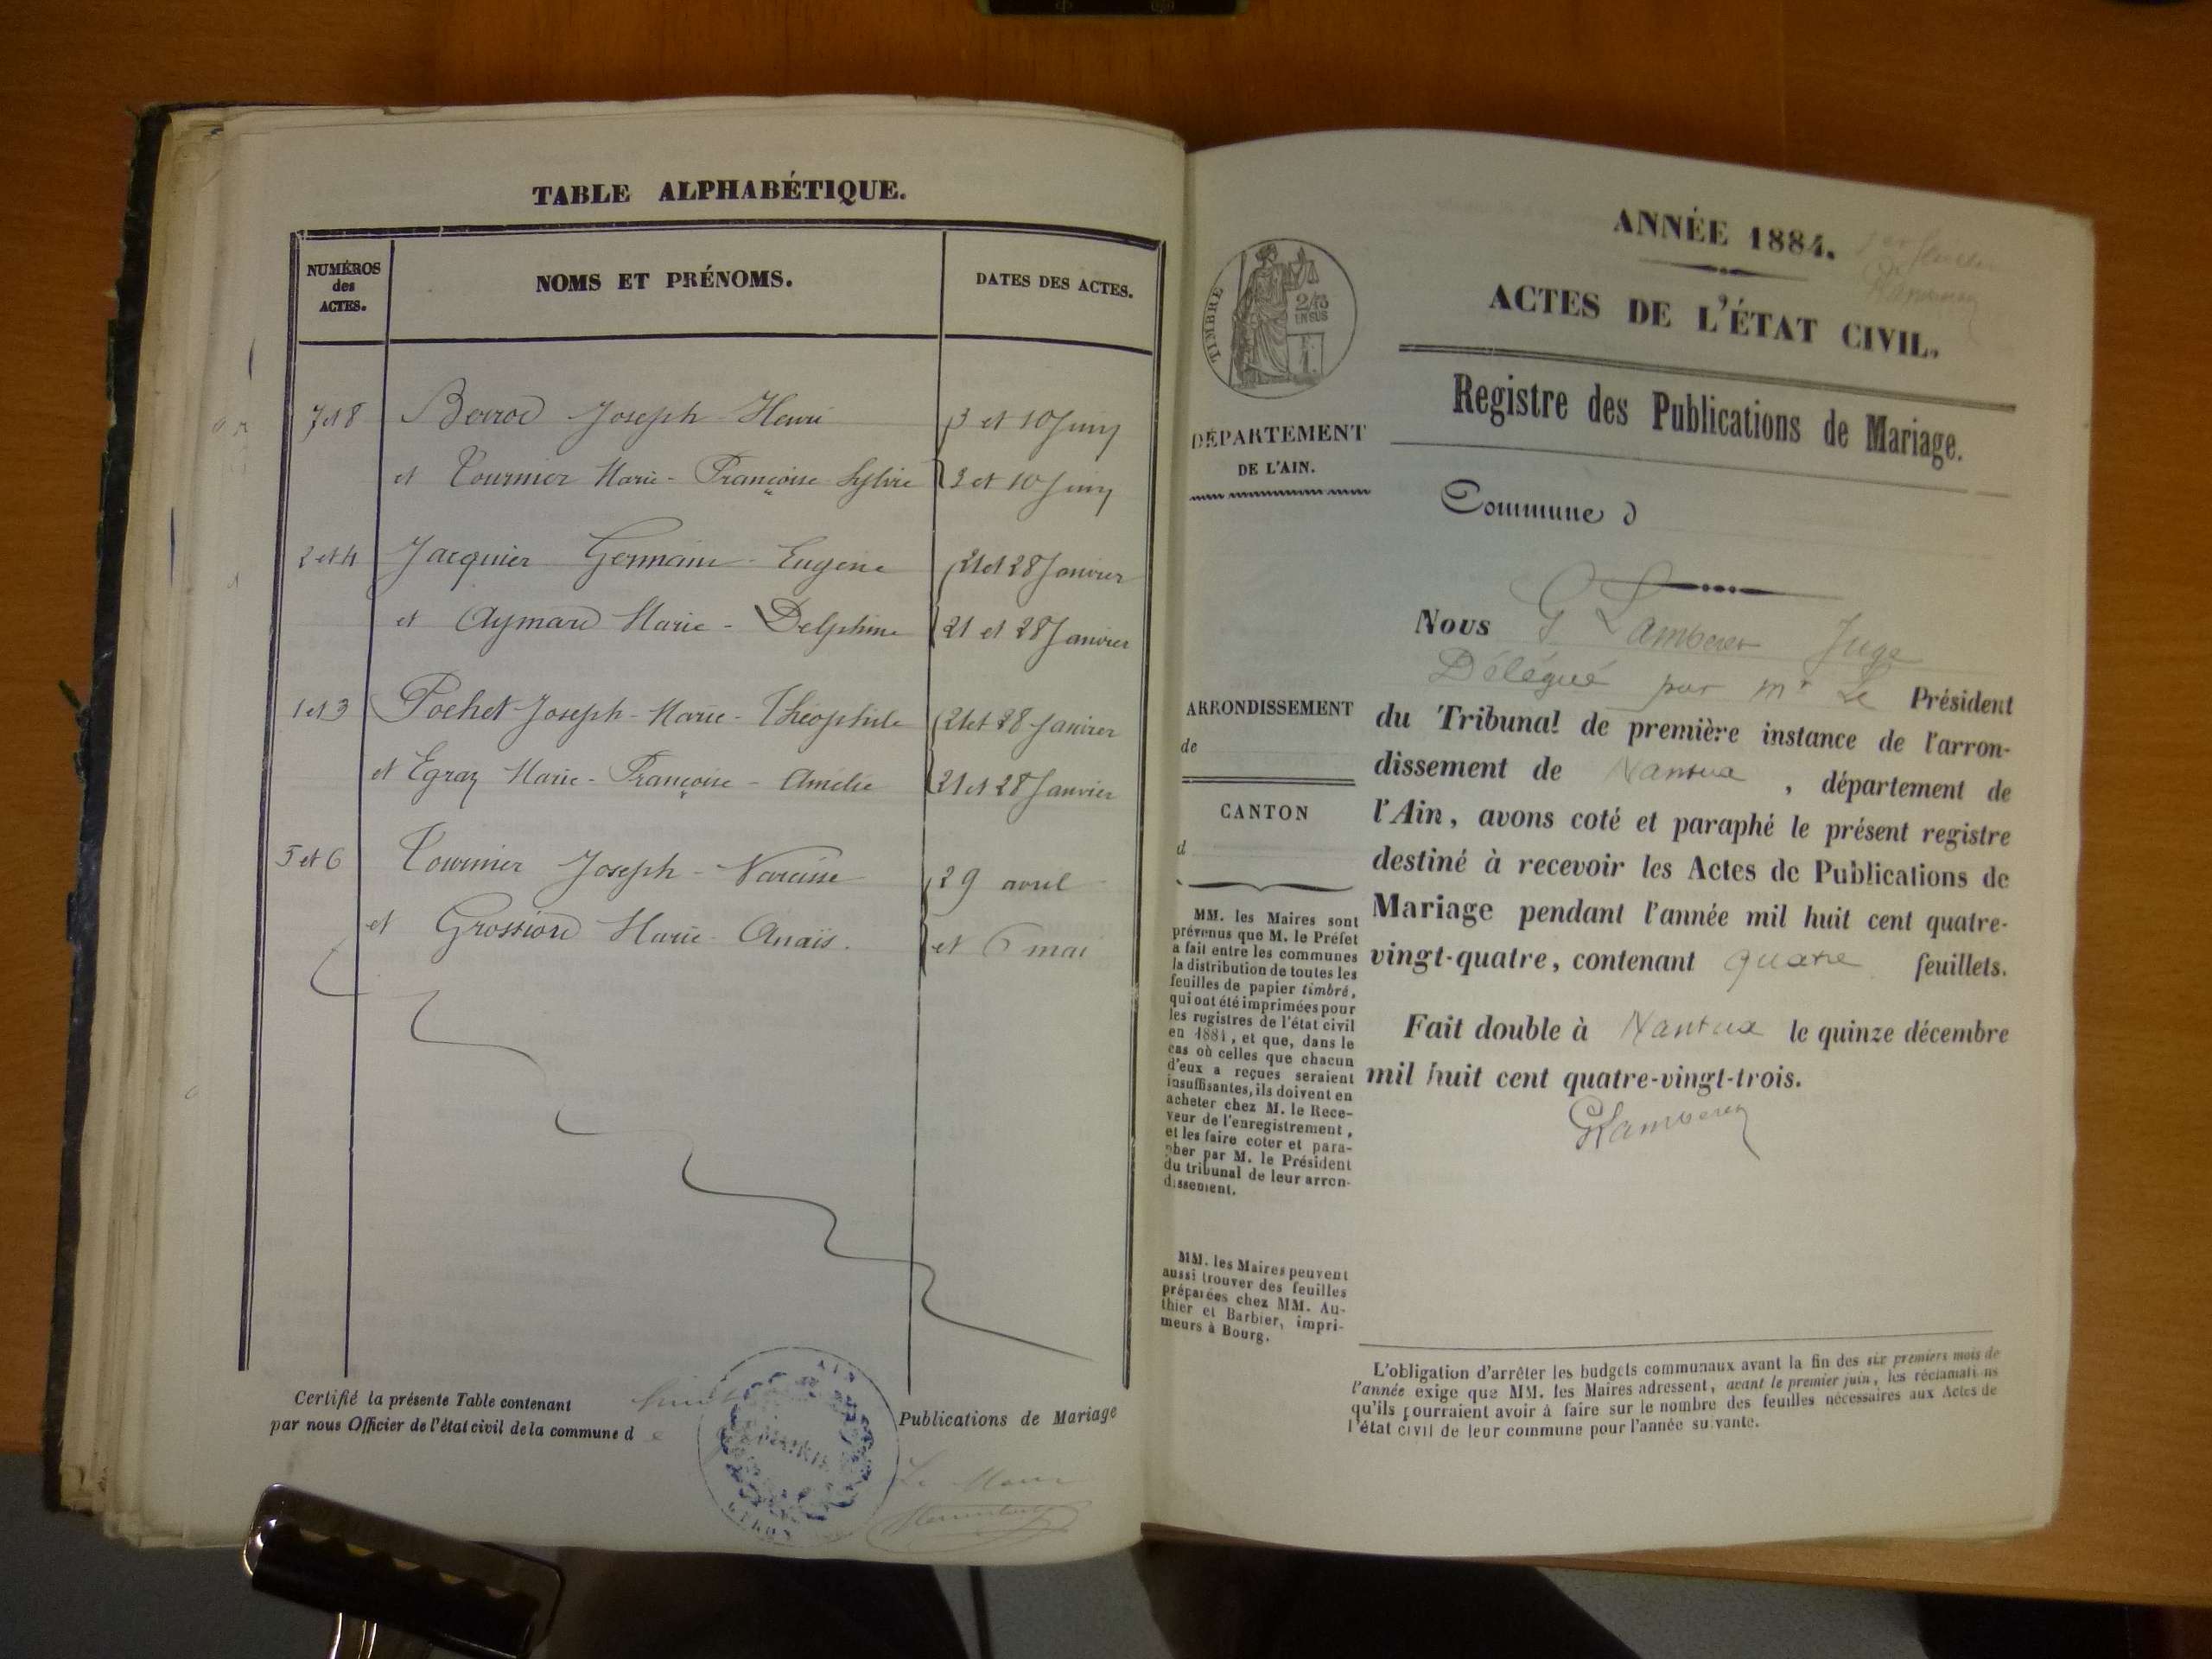 TABLE ALPHABÉTIQUE.
NUMÉROS
des
ACTES.
NOMS ET PRÉNOMS.
DATES DES ACTES.
7 et 8 Berrod Joseph Henri 3 et 10 Juin
et Tournier Marie-Françoise-Sylvie 3 et 10 Juin
2 et 4 Jacquier Germain-Eugène 21 et 28 Janvier
et Aymard Marie-Delphine 21 et 28 Janvier
1 et 3 Pochet Joseph-Marie-Théophile 21 et 28 Janvier
et Egraz Marie-Françoise-Amélie 21 et 28 Janvier
5 et 6 Tournier Joseph-Narcisse 29 avril
et Grossiord Marie-Anaïs. et 6 mai
Certifié la présente Table contenant Publications de Mariage
par nous Officier de l'état civil de la commune de
AIN
MAIRIE
Le Maire
ANNÉE 1884.
ACTES DE L'ÉTAT CIVIL.
TIMBRE
2/10
EN SUS
Registre des Publications de Mariage.
DÉPARTEMENT
DE L'AIN.
Commune d
ARRONDISSEMENT
de
CANTON
d
MM. les Maires sont
prévenus que M. le Préfet
a fait entre les communes
la distribution de toutes les
feuilles de papier timbré,
qui ont été imprimées pour
les registres de l'état civil
en 1884, et que, dans le
cas où celles que chacun
d'eux a reçues seraient
insuffisantes, ils doivent en
acheter chez M. le Rece-
veur de l'enregistrement,
et les faire coter et para-
pher par M. le Président
du tribunal de leur arron-
dissement.
MM. les Maires peuvent
aussi trouver des feuilles
préparées chez MM. Au-
thier et Barbier, impri-
meurs à Bourg.
Nous G Lamberet Juge
Délégué par Mr Le Président
du Tribunal de première instance de l'arron-
dissement de Nantua, département de
l'Ain, avons coté et paraphé le présent registre
destiné à recevoir les Actes de Publications de
Mariage pendant l'année mil huit cent quatre-
vingt-quatre, contenant quatre feuillets.
Fait double à Nantua le quinze décembre
mil huit cent quatre-vingt-trois.
GLamberet
L'obligation d'arrêter les budgets communaux avant la fin des six premiers mois de
l'année exige que MM. les Maires adressent, avant le premier juin, les réclamations
qu'ils pourraient avoir à faire sur le nombre des feuilles nécessaires aux Actes de
l'état civil de leur commune pour l'année suivante.